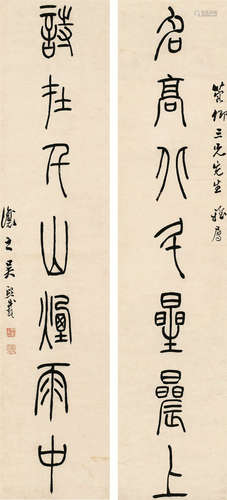 名高北斗星晨上
卿三兄先生屬
詩在千山煙雨中
讓之吳熙載